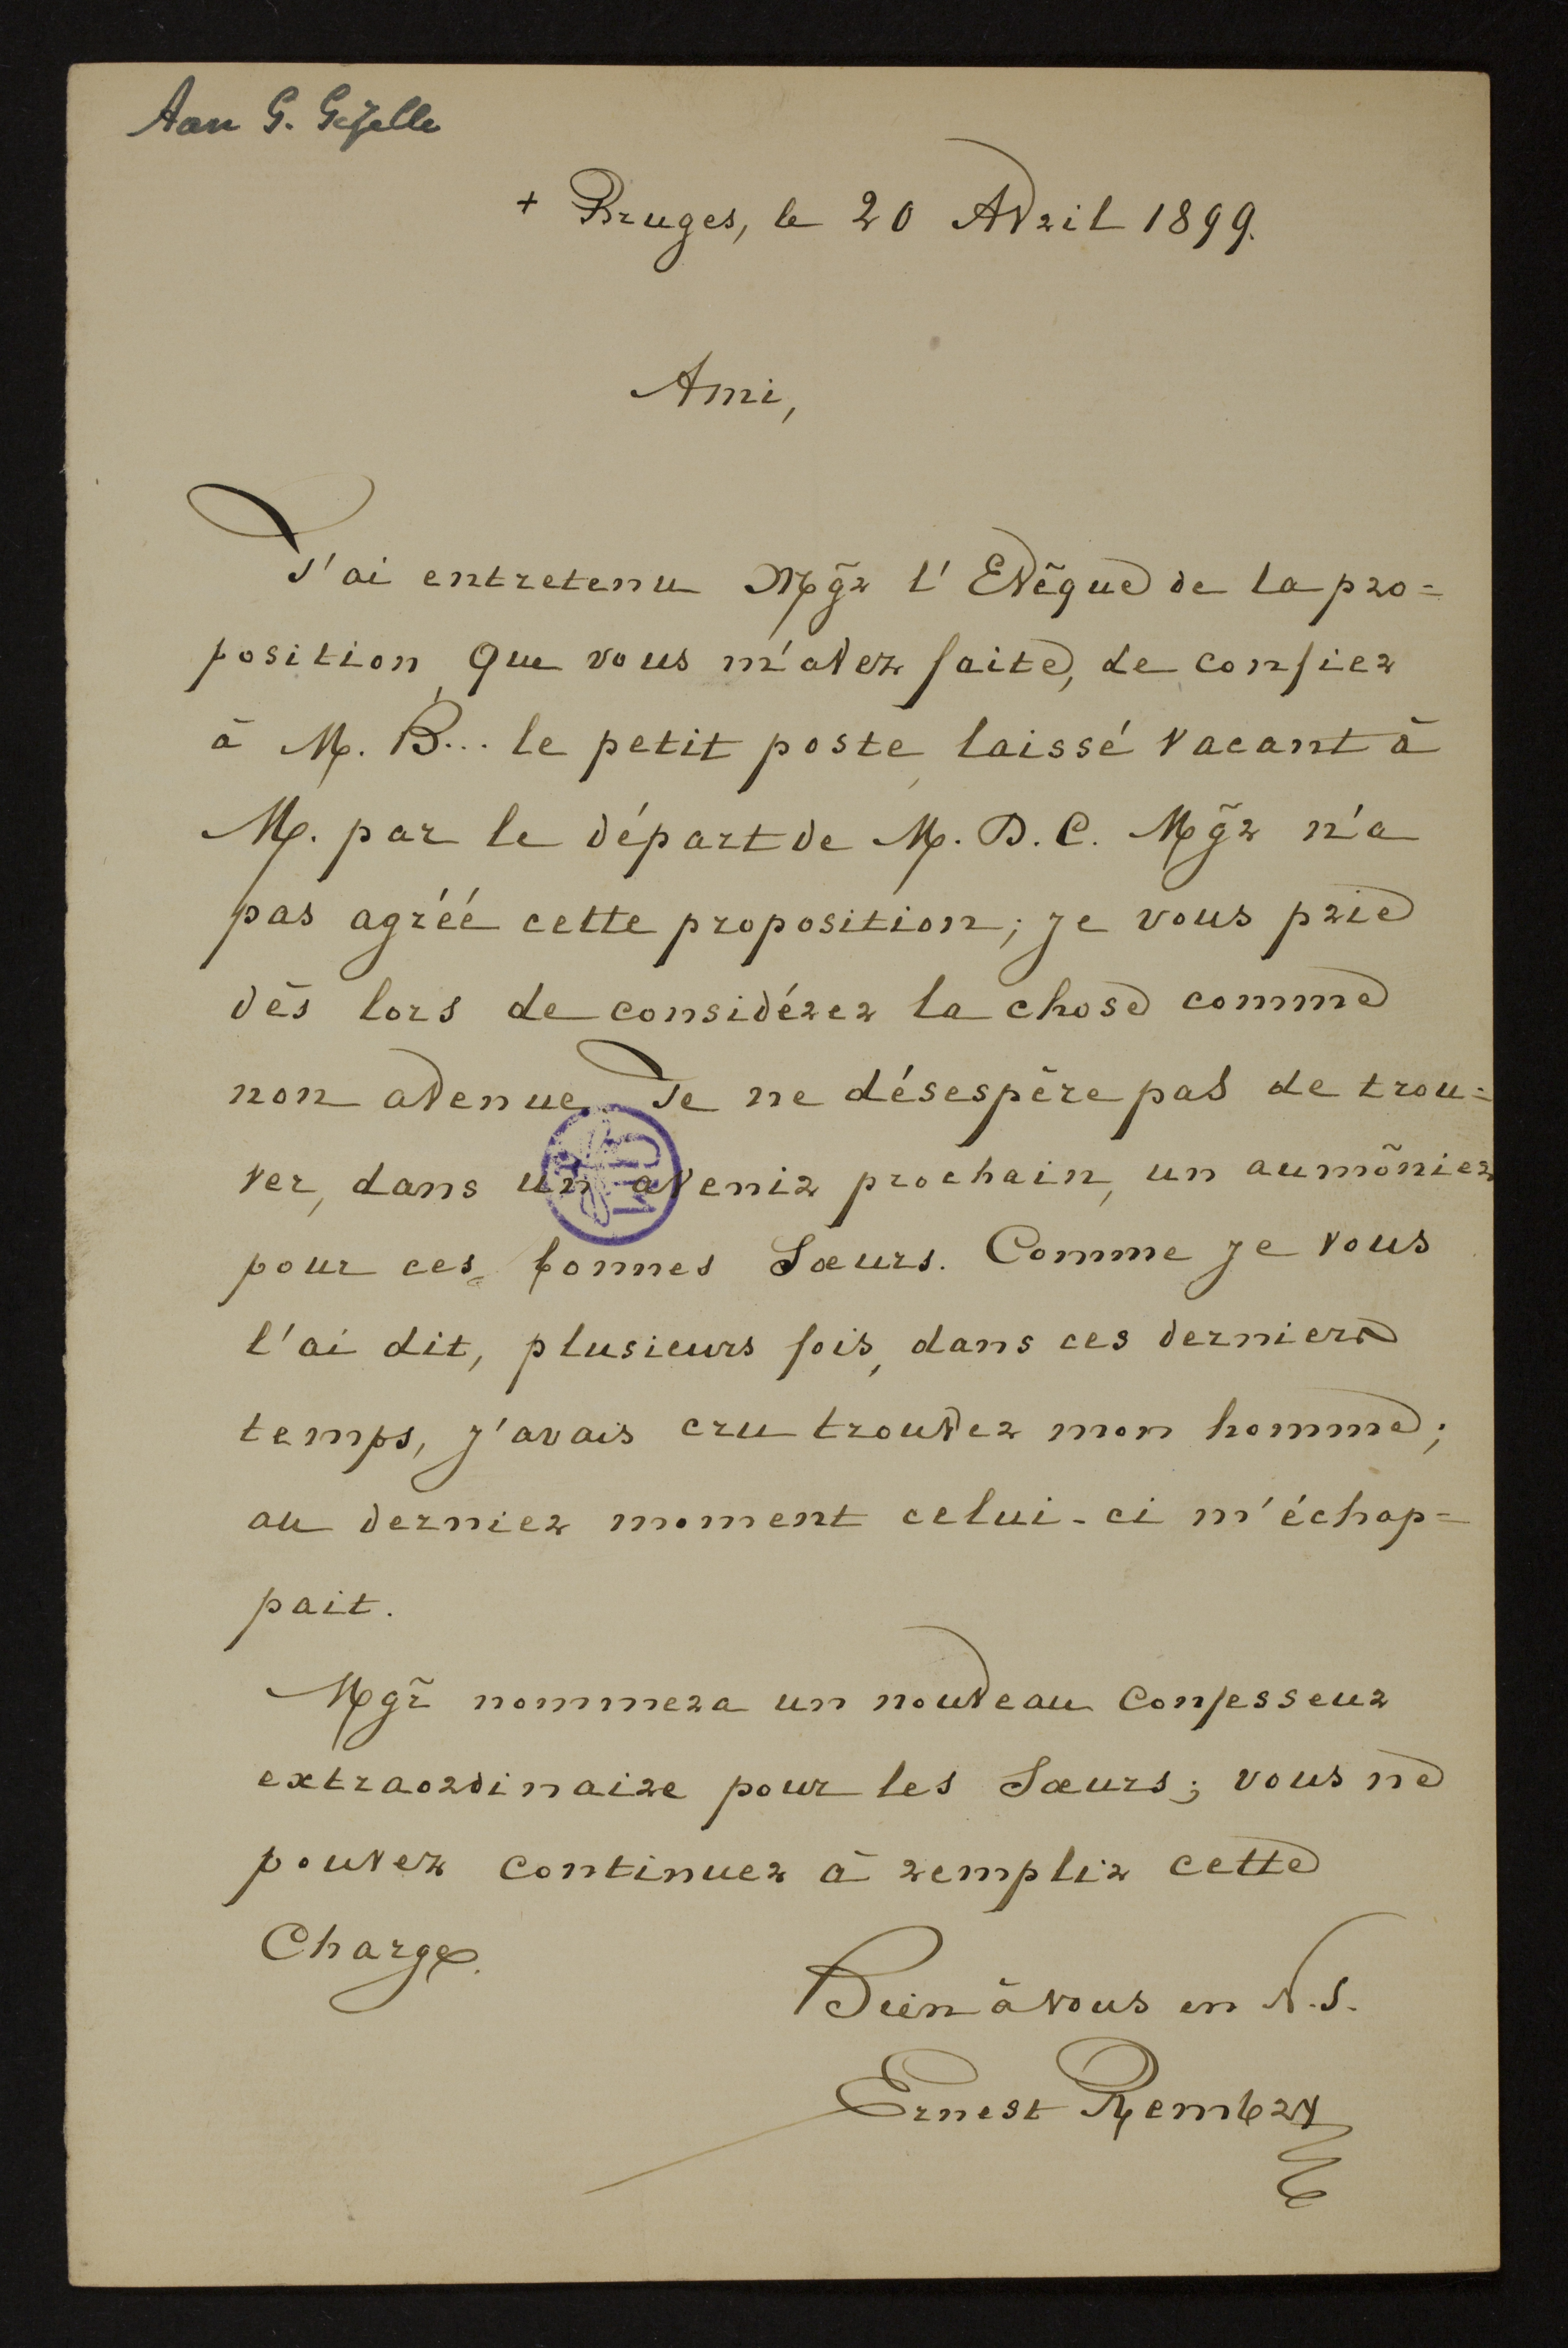 Aan G. Gezelle
+ Bruges, le 20 Avril 1899.
Ami,
J'ai entretenu Mgr l'Evêque de la pro=
position que vous m'avez faite, de confier
à M. B... le petit poste laissé vacant à
M. par le départ de M. D. C. Mgr n'a
pas agréé cette proposition; je vous prie
dès lors de considérer la chose comme
non avenue. Je ne désespère pas de trou=
ver, dans un avenir prochain, un aumônier
pour ces bonnes Sœurs. Comme je vous
l'ai dit, plusieurs fois, dans ces derniers
temps, j'avais cru trouver mon homme;
au dernier moment celui-ci m'échap=
pait.
Mgr nommera un nouveau confesseur
extraordinaire pour les Sœurs; vous ne
pouvez continuer à remplir cette
Charge.
Bien à vous en N.S.
Ernest Rembry